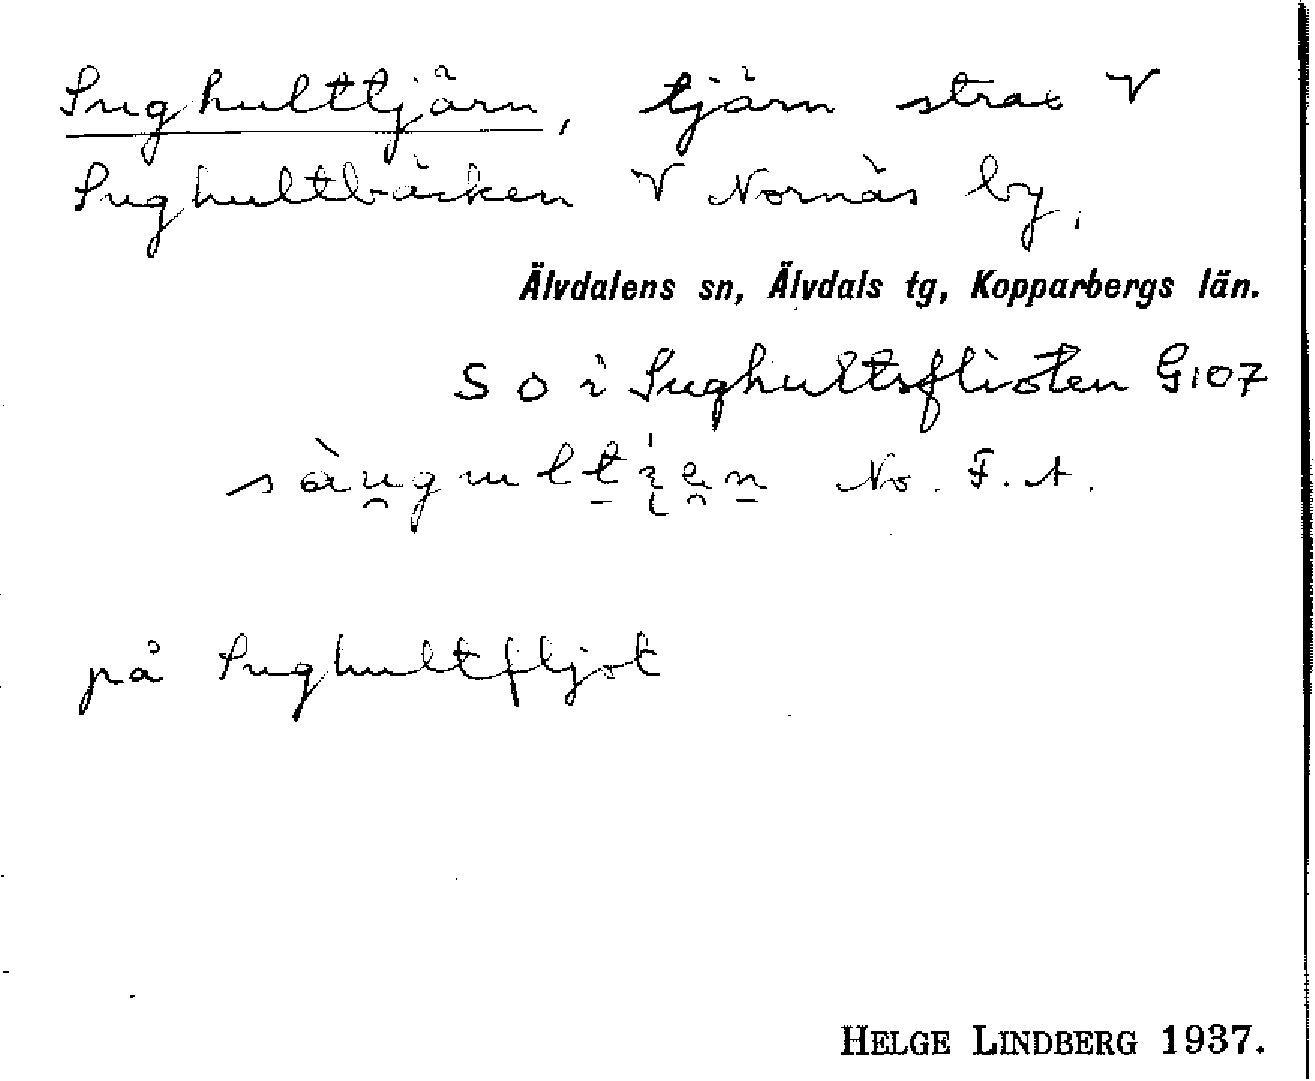 Sughulttjärn, tjärn strax V
Sughultbäcken V Nornäs by.
Älvdalens sn, Älvdals tg, Kopparbergs län.
S O i Sughultsflioten G107
No. F. A.
på Sughultfljot
HELGE LINDBERG 1937.